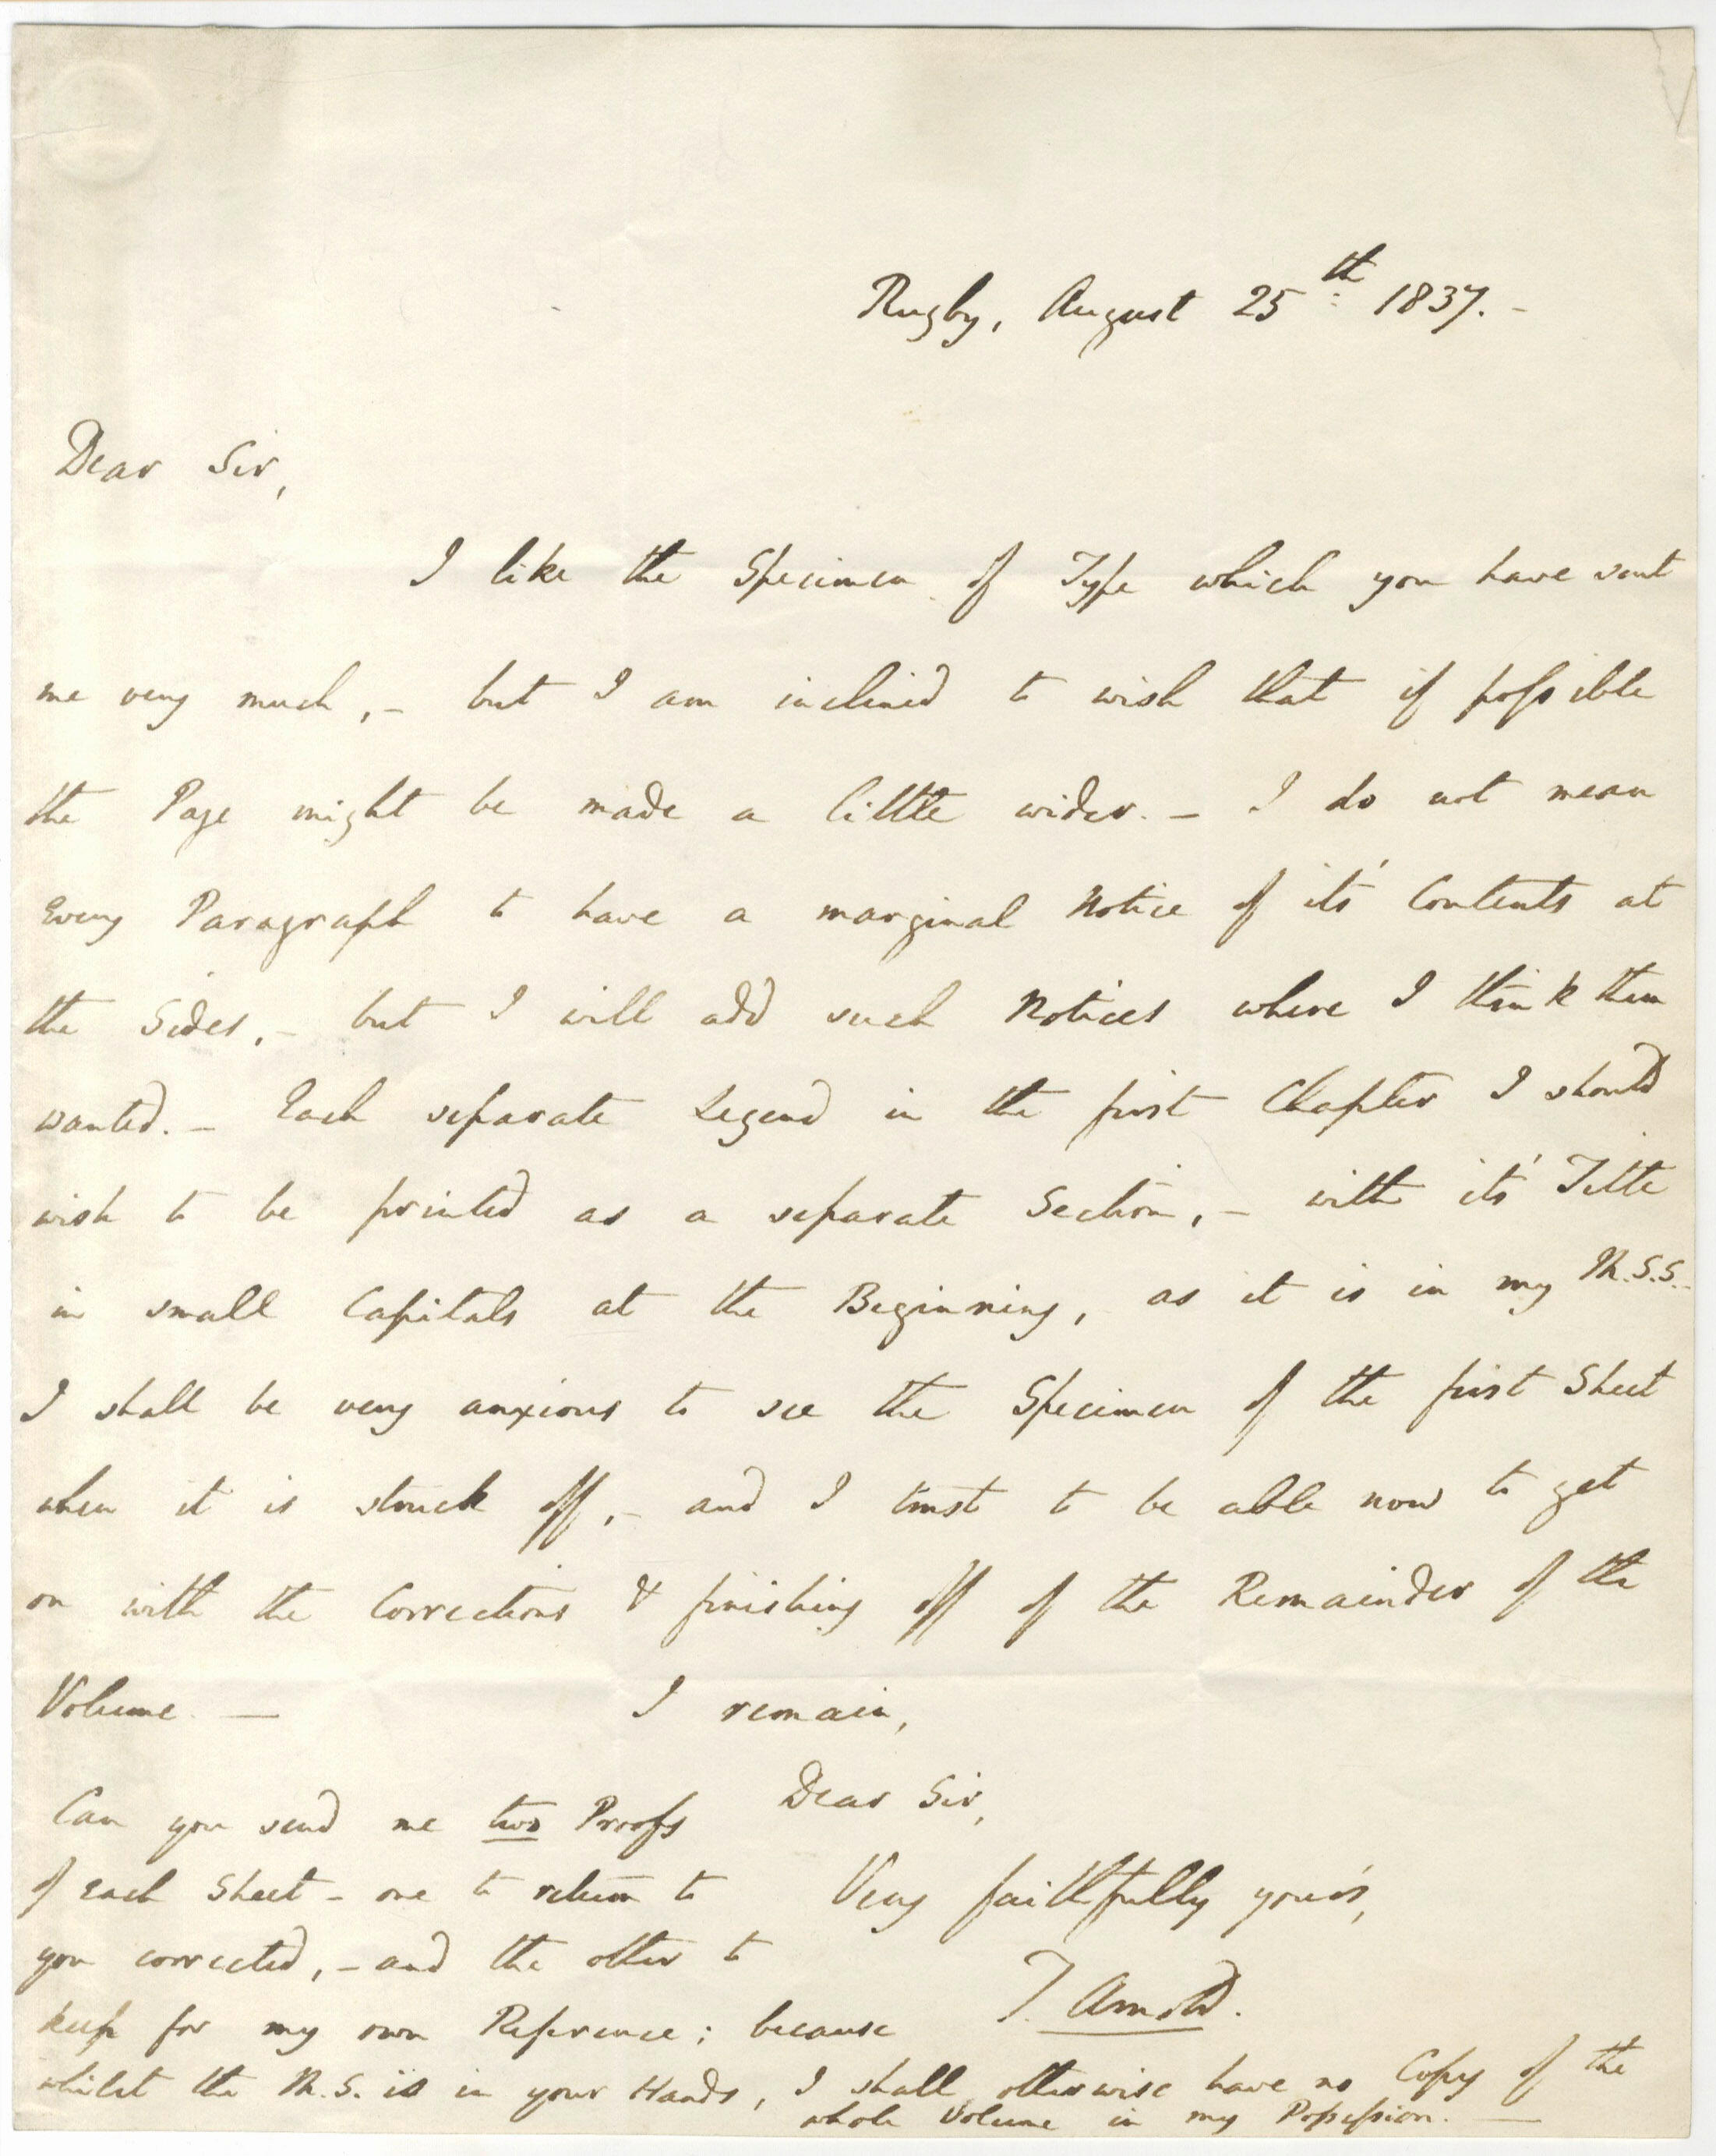 Rugby, August 25th 1837. -
Dear Sir,
I like the Specimen of Type which you have sent
me very much, - but I am inclined to wish that if possible
the Page might be made a little wider. - I do not mean
Every Paragraph to have a marginal Notice of it's Contents at
the Sides, - but I will add such Notices where I think them
wanted. - Each separate Legend in the first Chapter I should
wish to be printed as a separate Section, - with it's Title
in small Capitals at the Beginning, as it is in my M.S.S.
I shall be very anxious to see the Specimen of the first Sheet
when it is struck off, - and I trust to be able now to get
on with the Corrections & finishing off of the Remainder of the
Volume. —
I remain,
Dear Sir,
Very faithfully your's,
T. Arnold.
Can you send me two Proofs
of Each Sheet - one to return to
you corrected, - and the other to
keep for my own Reference; because
whilst the M.S. is in your Hands, I shall otherwise have no Copy of the
whole Volume in my Possession. —